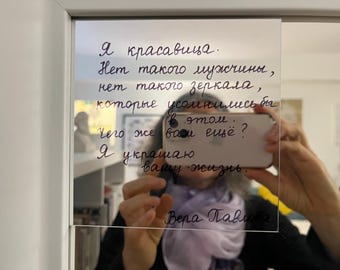 Я красавица.
Нет такого мужчины,
нет такого зеркала,
которые усомнились бы
в этом.
Чего же вам ещё?
Я украшаю
вашу жизнь.
Вера Павлова